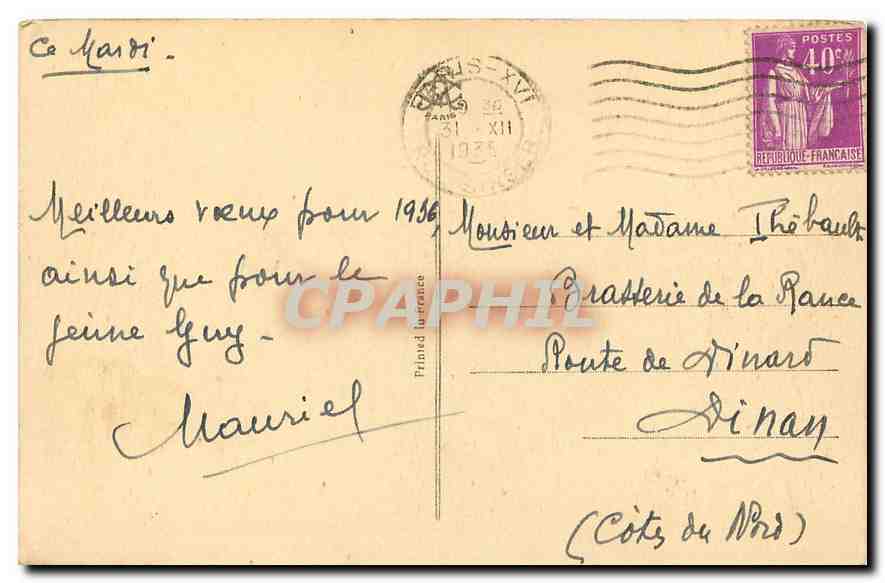 Ce Mardi.
PARIS-XVI
PARIS
30
31 XII
1935
POSTES
40c
REPUBLIQUE-FRANCAISE
Meilleurs vœux pour 1936,
ainsi que pour le
jeune Guy.
Mauriel
Printed in France
Monsieur et Madame Thébault
Brasserie de la Rance
Route de Dinard
Dinan
(Côtes du Nord)
CPAPHIL